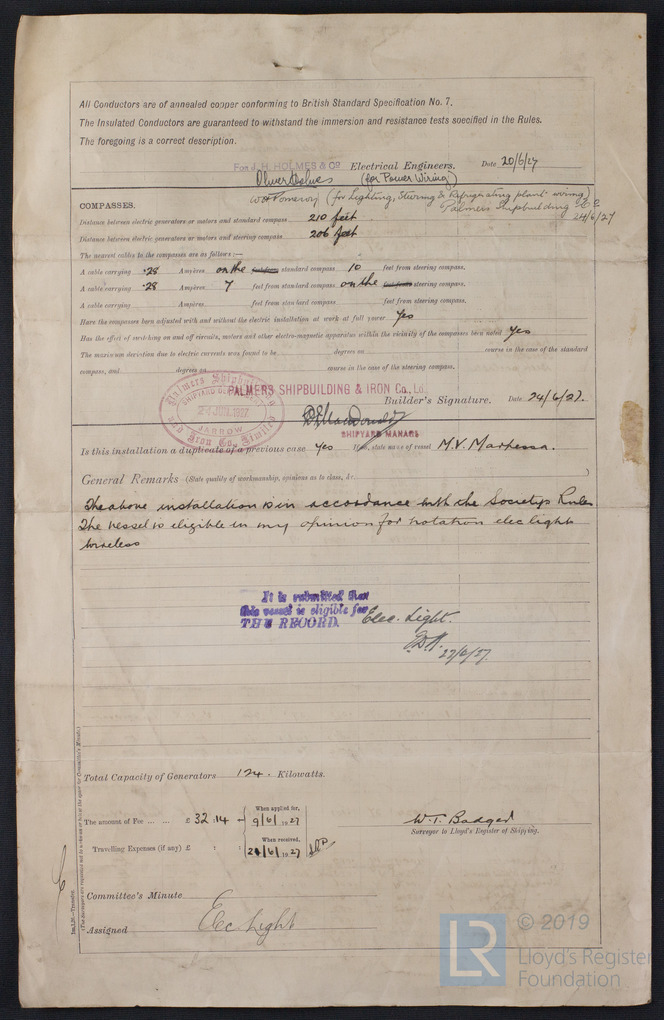 All Conductors are of annealed copper conforming to British Standard Specification No. 7.
The Insulated Conductors are guaranteed to withstand the immersion and resistance tests specified in the Rules.
The foregoing is a correct description.
FOR J. H. HOLMES & CO Electrical Engineers. Date 20/6/27
(for Power Wiring)
(for Lighting, Steering & Refrigerating plant wiring)
COMPASSES. Palmers Shipbuilding
24/6/27
Distance between electric generators or motors and standard compass 210 feet
Distance between electric generators or motors and steering compass 206 feet
The nearest cables to the compasses are as follows:—
A cable carrying .28 Ampères on the standard compass 10 feet from steering compass.
A cable carrying .28 Ampères 7 feet from standard compass on the steering compass.
A cable carrying Ampères feet from standard compass feet from steering compass.
Have the compasses been adjusted with and without the electric installation at work at full power Yes
Has the effect of switching on and off circuits, motors and other electro-magnetic apparatus within the vicinity of the compasses been noted Yes
The maximum deviation due to electric currents was found to be degrees on course in the case of the standard
compass, and degrees on course in the case of the steering compass.
Palmers Shipbuilding and Iron Co. Limited
24 JUN. 1927
JARROW
PALMERS SHIPBUILDING & IRON Co., Ld.
Builder's Signature. Date 24/6/27.
SHIPYARD MANAGER
Is this installation a duplicate of a previous case Yes If so, state name of vessel M.V. Marhessa.
General Remarks (State quality of workmanship, opinions as to class, &c. )
The above installation is in accordance with the Society's Rules
The vessel is eligible in my opinion for notation elec light
wireless
It is submitted that
this vessel is eligible for
THE RECORD. Elec. Light.
22/6/27.
Total Capacity of Generators 124. Kilowatts.
The amount of Fee ... ... £ 32 : 14 : When applied for, 9/6/1927
Travelling Expenses (if any) £ : : When received, 24/6/1927
W.T. Badger
Surveyor to Lloyd's Register of Shipping.
Committee's Minute
Assigned Elec Light
Im.1,26.—Transfer.
© 2019
LR Lloyd's Register
Foundation